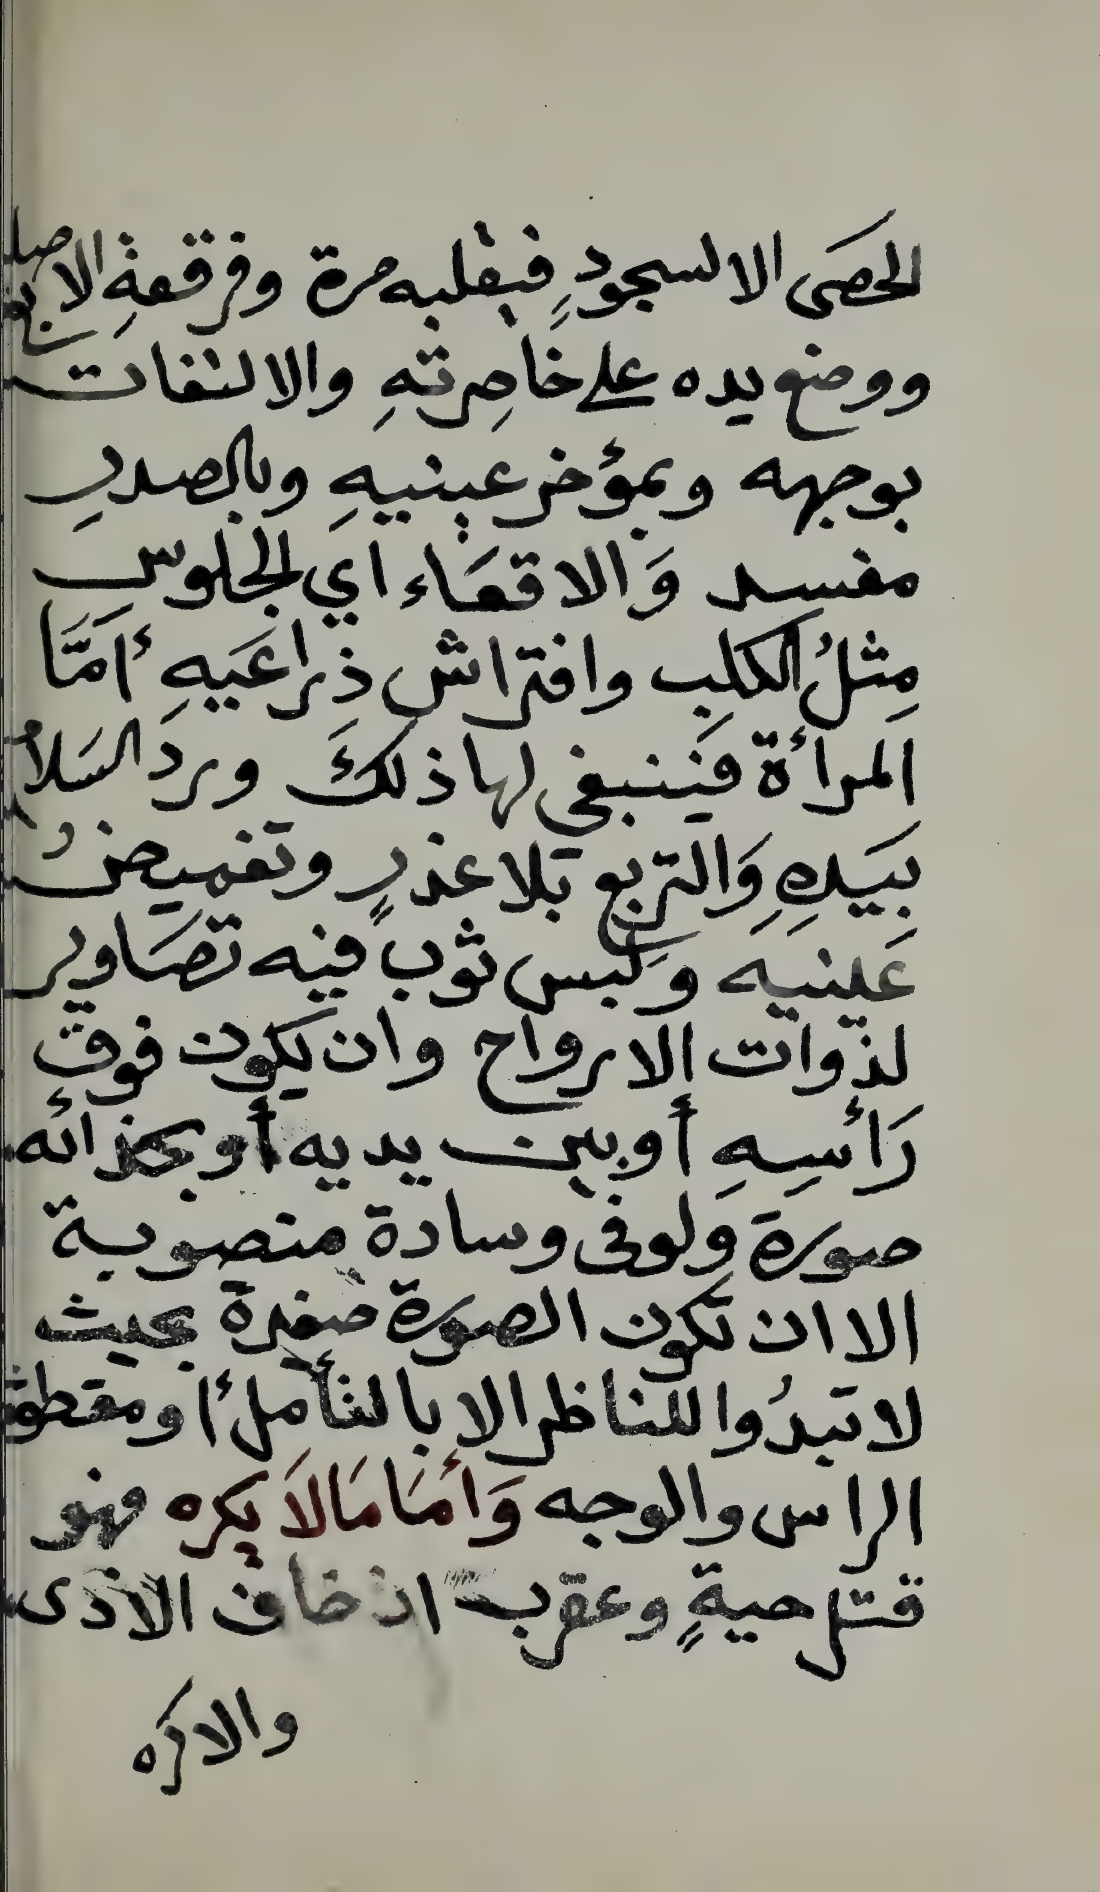 الحصى الا لسجودٍ فيقلبه مرة وفرقعةِ الاصابع
ووضع يده على خاصِرتهِ والالتفات
بوجهه وبمؤخر عينيهِ وبالصدرِ
مفسد وَالاقعَاء اي الجلوس
مِثلُ الكلب وافتراش ذراعَيهِ أمَّا
المرأة فينبغي لها ذلكَ وردَ السَلام
بيَدِهِ وَالتربع بَلا عذرٍ وتغميضُ
عَينيه ولَبس ثوب فيه تصَاوير
لذوات الارواح وان يكون فوق
رَأسِهِ أو بين يديه أو بحذائه
صورة ولو في وسادة منصوبة
الا ان تكون الصورة صغيرة بحيث
لا تبدُوا للناظر الا بالتأمل أو مقطوعة
الراس والوجه وَأمَا مَا لَا يكره فهو
قتل حيةٍ وعقرب ان خاف الاذى
والا كره